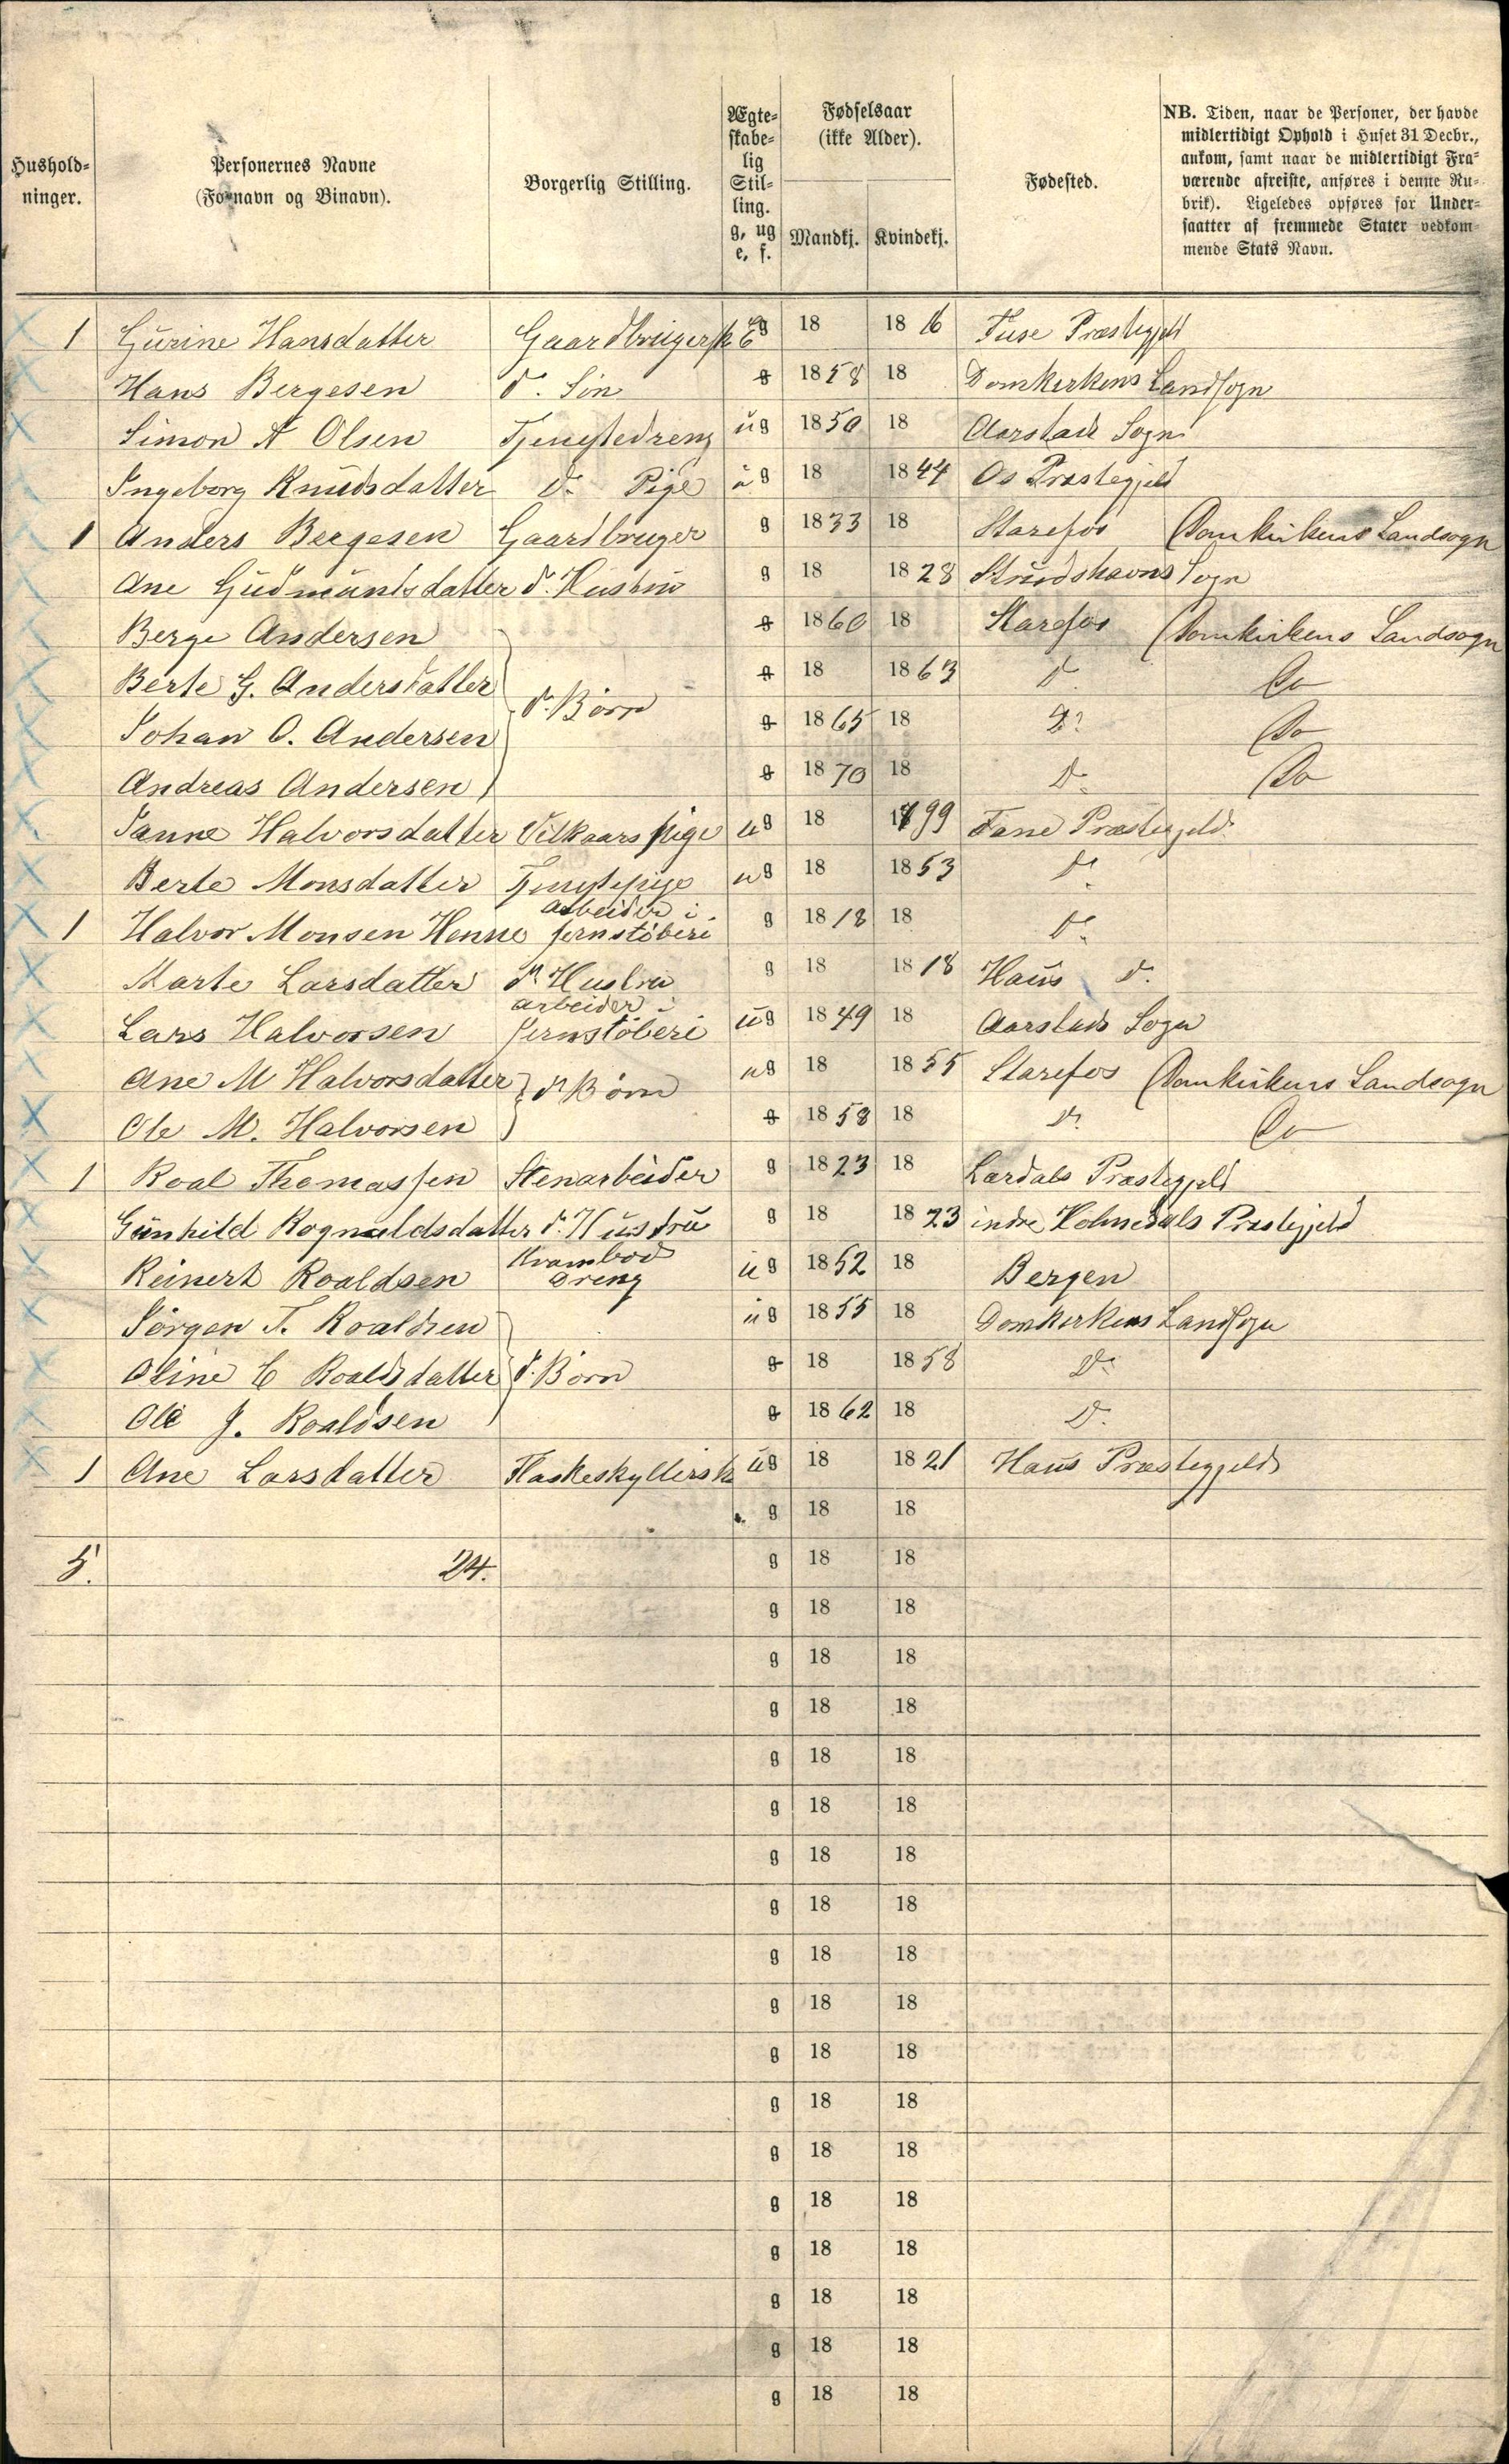 Hushold-
ninger.
Personernes Navne
(Fornavn og Binavn).
Borgerlig Stilling.
Ægte-
skabe-
lig
Stil-
ling.
g, ug
e, f.
Fødselsaar
(ikke Alder).
Mandkj. Kvindekj.
Fødested.
NB. Tiden, naar de Personer, der havde
midlertidigt Ophold i Huset 31 Decbr.,
ankom, samt naar de midlertidigt Fra-
værende afreiste, anføres i denne Ru-
brik). Ligeledes opføres for Under-
saatter af fremmede Stater vedkom-
mende Stats Navn.
1 Gurine Hansdatter Gaardbrugerske E g 18 1816 Fuse Præstegjeld
Hans Bergesen do Søn g 1858 18 Domkirkens Landsogn
Simon A Olsen Tjenestedreng ug 1850 18 Aarstad Sogn
Ingeborg Knudsdatter do Pige ug 18 1844 Os Præstegjeld
1 Anders Bergesen Gaardbruger g 1833 18 Starefos Domkirkens Landsogn
Ane Gudmundsdatter do Hustru g 18 1828 Strudshavns Sogn
Berge Andersen g 1860 18 Starefos Domkirkens Landsogn
Berte G. Andersdatter g 18 1863 do Do
do Børn
Johan O. Andersen g 1865 18 do Do
Andreas Andersen g 1870 18 do Do
Janne Halvorsdatter Vilkaarspige ug 18 1799 Fane Præstegjeld
Berte Monsdatter Tjenestepige ug 18 1853 do
1 Halvor Monsen Henne arbeider i jernstøberi g 1818 18 do
Marte Larsdatter do Hustru g 18 1818 Haus do
Lars Halvorsen arbeider i jernstøberi ug 1849 18 Aarstads Sogn
Ane M Halvorsdatter do Børn ug 18 1855 Starefos Domkirkens Landsogn
Ole M. Halvorsen g 1858 18 do Do
1 Roal Thomassen Stenarbeider g 1823 18 Lærdals Præstegjeld
Gunhild Rognaldsdatter do Hustru g 18 1823 indre Holmedals Præstegjeld
Reinert Roaldsen Krambod dreng ug 1852 18 Bergen
Jørgen T. Roaldsen ug 1855 18 Domkirkens Landsogn
Oline C Roaldsdatter do Børn g 18 1858 do
Ole J. Roaldsen g 1862 18 do
1 Ane Larsdatter Flaskeskyllerske ug 18 1821 Haus Præstegjeld
g 18 18
5. 24. g 18 18
g 18 18
g 18 18
g 18 18
g 18 18
g 18 18
g 18 18
g 18 18
g 18 18
g 18 18
g 18 18
g 18 18
g 18 18
g 18 18
g 18 18
g 18 18
g 18 18
g 18 18